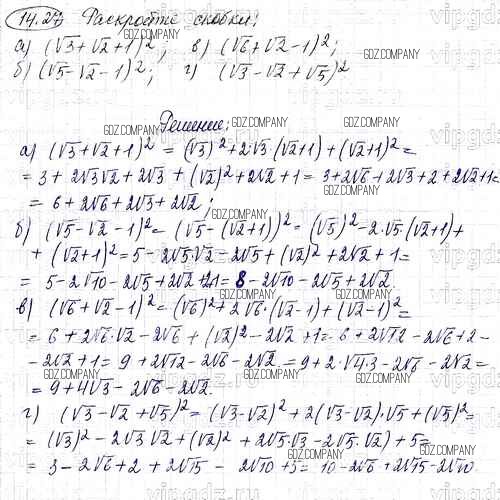 14.27 Раскройте скобки:
а) (√3+√2+1)²; в) (√6+√2-1)²;
б) (√5-√2-1)²; г) (√3-√2+√5)²
Решение:
а) (√3+√2+1)² = (√3)²+2√3·(√2+1)+(√2+1)²=
= 3 + 2√3√2 + 2√3 + (√2)²+2√2+1= 3+2√6+2√3+2+2√2+1=
= 6 + 2√6 + 2√3 + 2√2;
б) (√5-√2-1)²= (√5-(√2+1))² = (√5)²-2·√5·(√2+1)+
+ (√2+1)²= 5-2√5·√2-2√5+(√2)²+2√2+1=
= 5-2√10-2√5+2√2+2+1= 8-2√10-2√5+2√2.
в) (√6+√2-1)² = (√6)²+2√6·(√2-1)+(√2-1)²=
= 6+2√6·√2-2√6+(√2)²-2√2+1= 6+2√12-2√6+2-
-2√2+1= 9+2√12-2√6-2√2=9+2·√4·3-2√6-2√2=
= 9+4√3-2√6-2√2.
г) (√3-√2+√5)²= (√3-√2)²+2(√3-√2)·√5+(√5)²=
= (√3)²-2√3√2+(√2)²+2√5·√3-2√5·√2)+5=
= 3-2√6+2+2√15-2√10+5= 10-2√6+2√15-2√10.